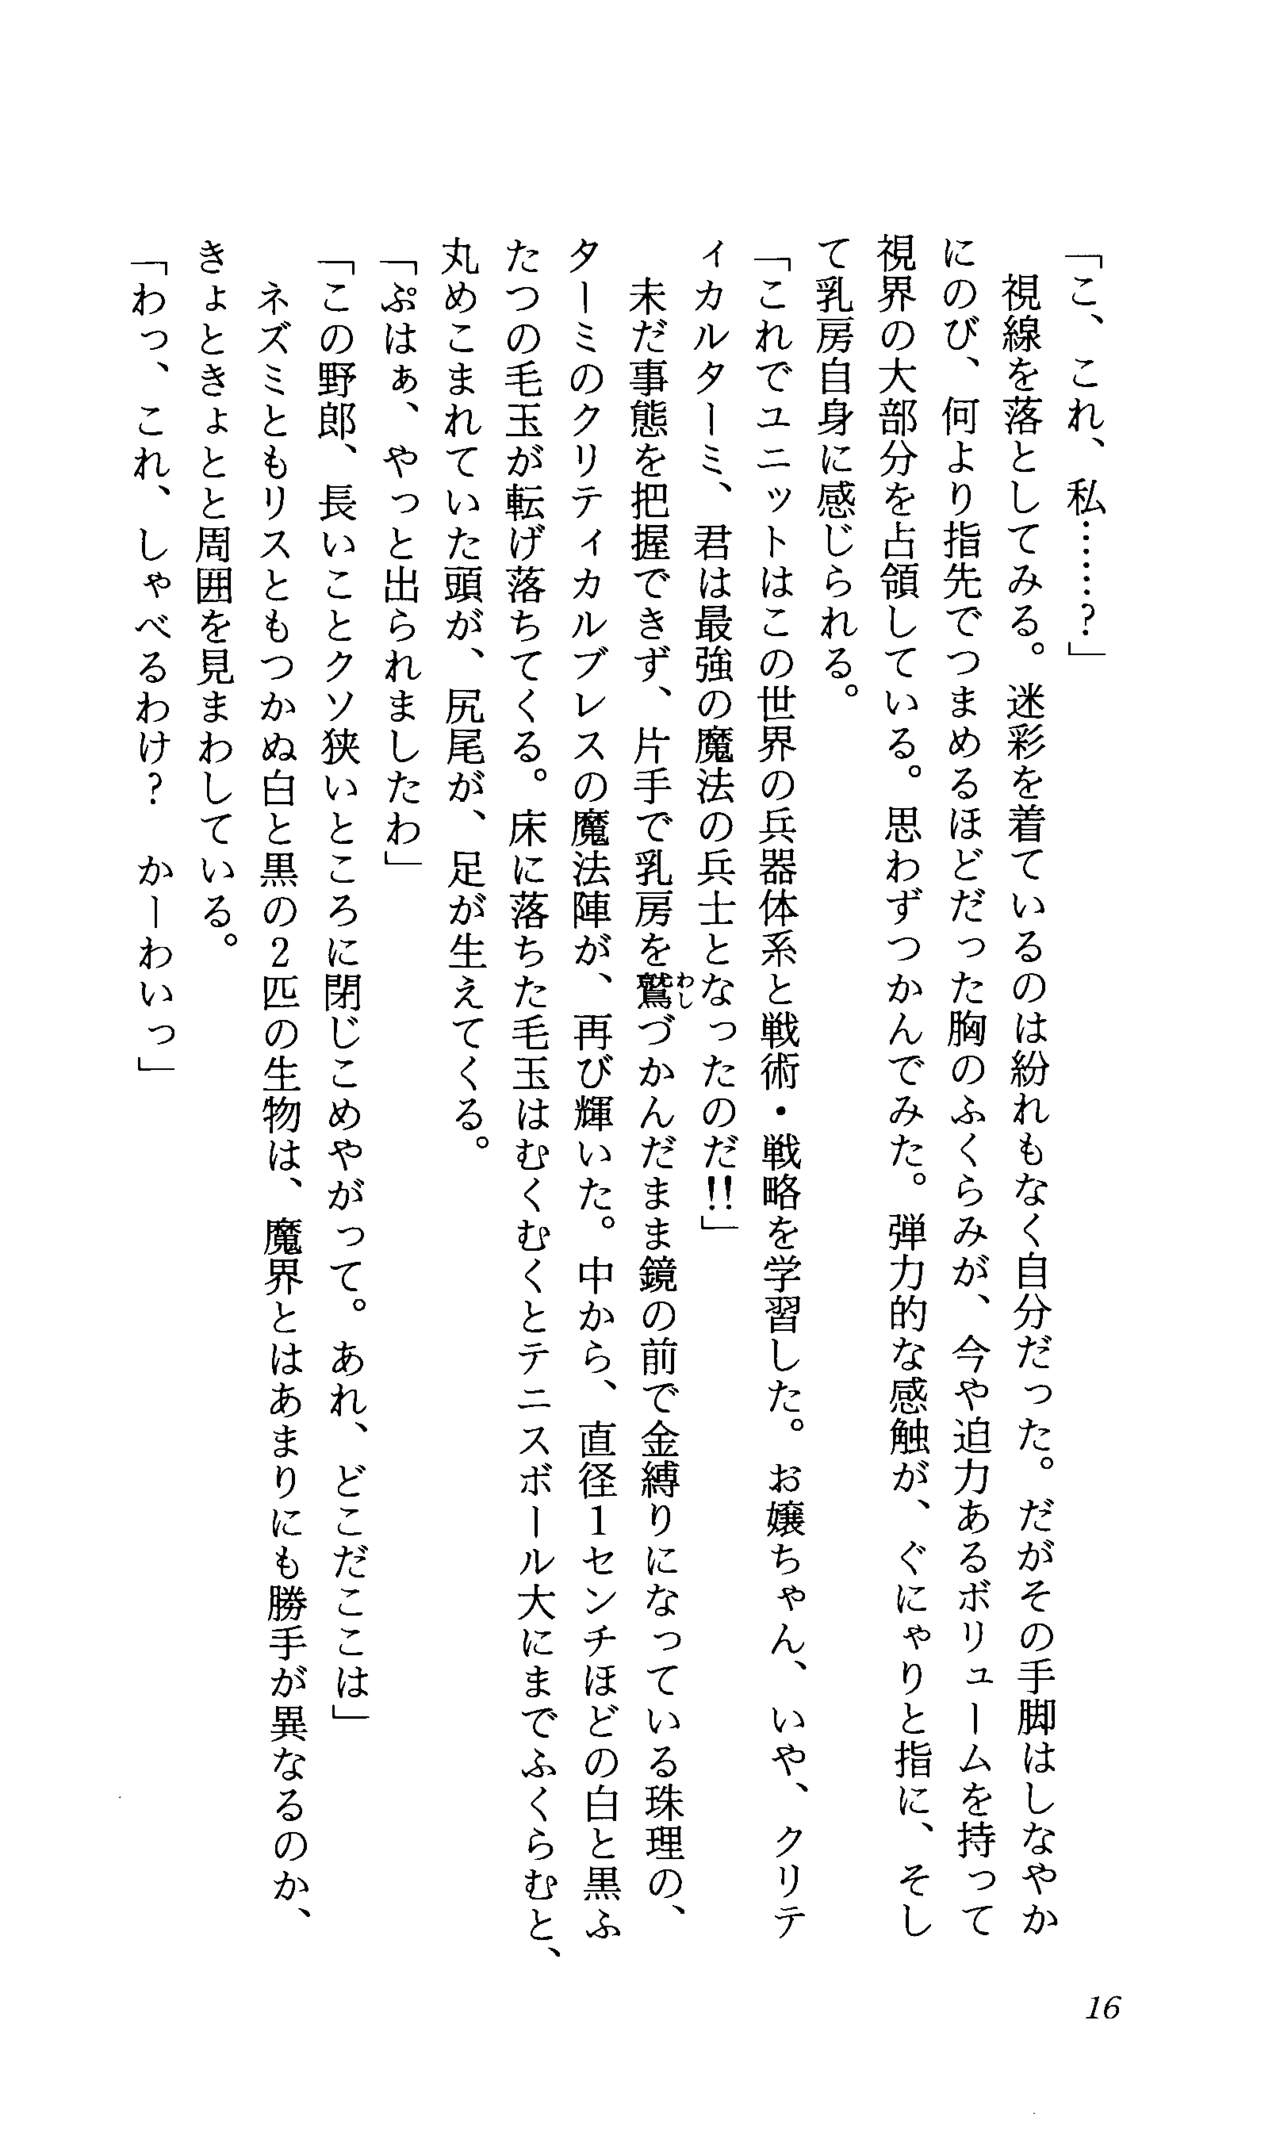 「こ、これ、私……？」
　視線を落としてみる。迷彩を着ているのは紛れもなく自分だった。だがその手脚はしなやか
にのび、何より指先でつまめるほどだった胸のふくらみが、今や迫力あるボリュームを持って
視界の大部分を占領している。思わずつかんでみた。弾力的な感触が、ぐにゃりと指に、そし
て乳房自身に感じられる。
「これでユニットはこの世界の兵器体系と戦術・戦略を学習した。お嬢ちゃん、いや、クリテ
ィカルターミ、君は最強の魔法の兵士となったのだ!!」
　未だ事態を把握できず、片手で乳房を鷲わしづかんだまま鏡の前で金縛りになっている珠理の、
ターミのクリティカルブレスの魔法陣が、再び輝いた。中から、直径１センチほどの白と黒ふ
たつの毛玉が転げ落ちてくる。床に落ちた毛玉はむくむくとテニスボール大にまでふくらむと、
丸めこまれていた頭が、尻尾が、足が生えてくる。
「ぷはぁ、やっと出られましたわ」
「この野郎、長いことクソ狭いところに閉じこめやがって。あれ、どこだここは」
　ネズミともリスともつかぬ白と黒の２匹の生物は、魔界とはあまりにも勝手が異なるのか、
きょときょとと周囲を見まわしている。
「わっ、これ、しゃべるわけ？　かーわいっ」
16